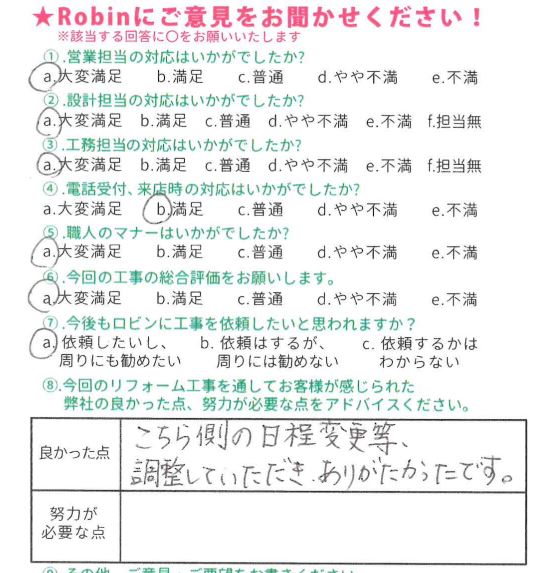 ★Robinにご意見をお聞かせください！
※該当する回答に〇をお願いいたします
①.営業担当の対応はいかがでしたか?
a.大変満足 b.満足 c.普通 d.やや不満 e.不満
②.設計担当の対応はいかがでしたか?
a.大変満足 b.満足 c.普通 d.やや不満 e.不満 f.担当無
③.工務担当の対応はいかがでしたか?
a.大変満足 b.満足 c.普通 d.やや不満 e.不満 f.担当無
④.電話受付、来店時の対応はいかがでしたか?
a.大変満足 b.満足 c.普通 d.やや不満 e.不満
⑤.職人のマナーはいかがでしたか?
a.大変満足 b.満足 c.普通 d.やや不満 e.不満
⑥.今回の工事の総合評価をお願いします。
a.大変満足 b.満足 c.普通 d.やや不満 e.不満
⑦.今後もロビンに工事を依頼したいと思われますか？
a. 依頼したいし、 b. 依頼はするが、 c. 依頼するかは
周りにも勧めたい 周りには勧めない わからない
⑧.今回のリフォーム工事を通してお客様が感じられた
弊社の良かった点、努力が必要な点をアドバイスください。
良かった点
こちら側の日程変更等、
調整していただき、ありがたかったです。
努力が
必要な点